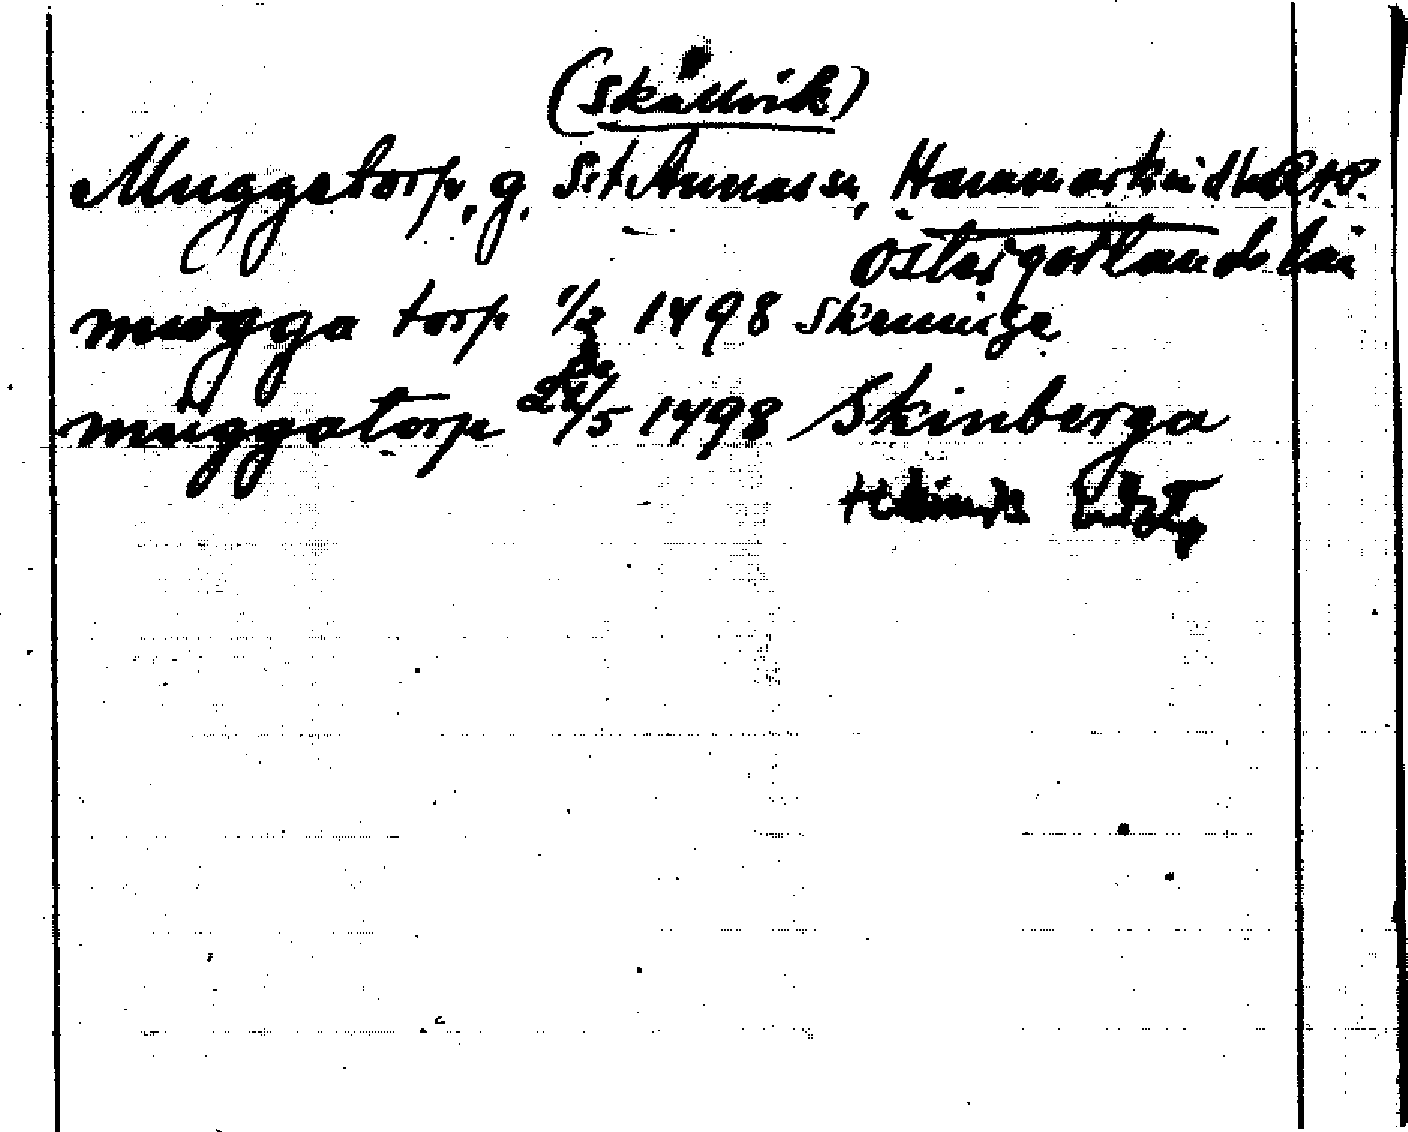 (Skällvik)
Muggetorp, g. S:t Anna sn, Hammarkinds
Östergötlands län
mwgga torp 1/2 1498 Skeninge
muggatorp 22/5 1498 Skinberga